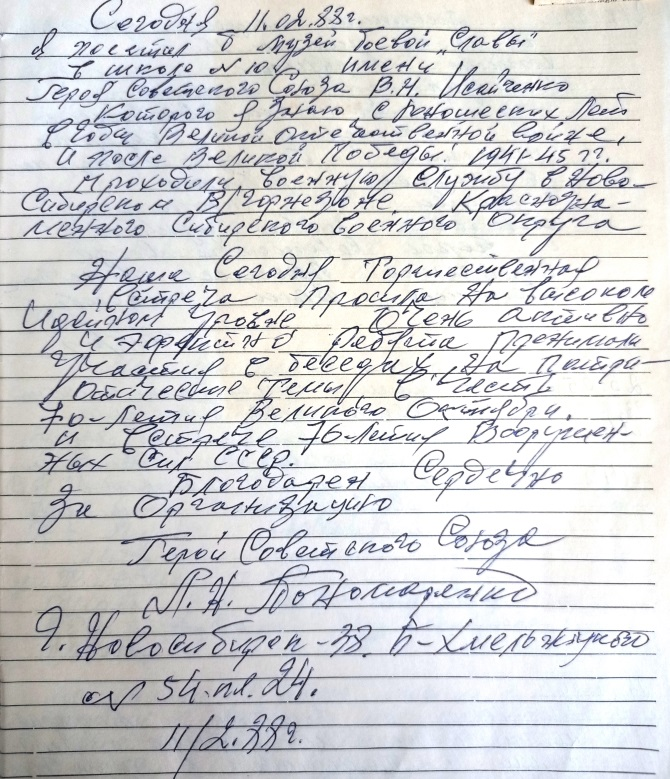 Сегодня 11.02.88г.
Я посетил в музей боевой „Славы"
в школе № 10 имени
Героя Советского Союза В.Н. Исайченко
Которого я знаю с Юношеских Лет
в Годы Великой Отечественной войне,
И после Великой Победы! 1941-45 гг.
Проходили военную Службу в Ново-
Сибирском В/Горнизоне Краснозна-
менного Сибирского военного Округа
Наша Сегодня Торжественная
Встреча Прошла На высоком
Идейном уровне Очень активно
и ребята Принимали
Участия в беседах На Патри-
отические Темы в Честь
70-Летия Великого Октября.
и встрече 70-Летия Вооружен-
ных Сил СССР.
Благодарен Сердечно
За Организацию
Герой Советского Союза
П.Н. Пономаренко
Г. Новосибирск-38. Б-Хмельницкого
№ 54.кв.24.
11/2.88г.